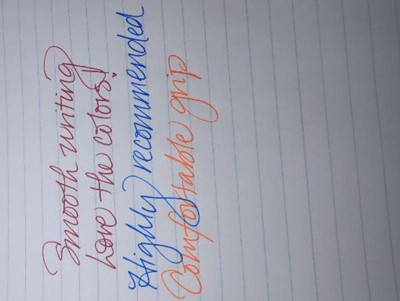 Smooth writing
Love the colors!
Highly recommended
Comfortable grip